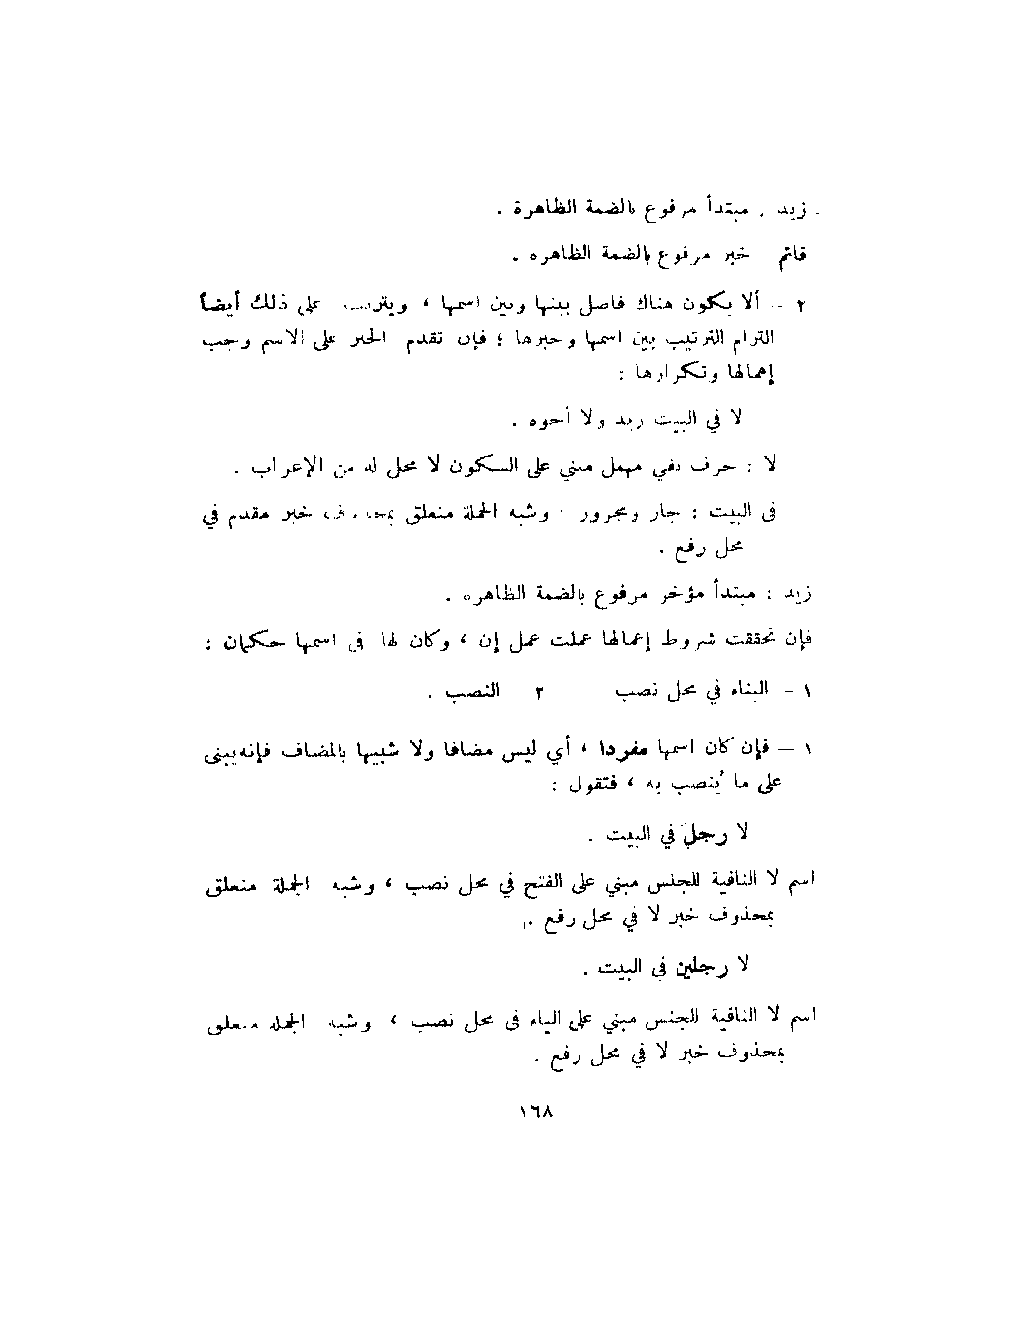 زيد : مبتدأ مرفوع بالضمة الظاهرة .
قائم خبر مرفوع بالضمة الظاهرة .
٢ - ألا يكون هناك فاصل بينها وبين اسمها ، ويترتب على ذلك أيضاً
التزام الترتيب بين اسمها وخبرها ؛ فإن تقدم الخبر على الاسم وجب
إهمالها وتكرارها :
لا في البيت زيد ولا أخوه .
لا : حرف نفي مهمل مبني على السكون لا محل له من الإعراب .
في البيت : جار ومجرور . وشبه الجملة متعلق بمحذوف خبر مقدم في
محل رفع .
زيد : مبتدأ مؤخر مرفوع بالضمة الظاهرة .
فإن تحققت شروط إعمالها عملت عمل إن ، وكان لها في اسمها حكمان :
١ - البناء في محل نصب ٢ النصب .
١ — فإن كان اسمها مفردا ، أي ليس مضافا ولا شبيها بالمضاف فإنه يبنى
على ما يُنصب به ، فتقول :
لا رجلَ في البيت .
اسم لا النافية للجنس مبني على الفتح في محل نصب ، وشبه الجملة متعلق
بمحذوف خبر لا في محل رفع .
لا رجلين في البيت .
اسم لا النافية للجنس مبني على الياء في محل نصب ، وشبه الجملة متعلق
بمحذوف خبر لا في محل رفع .
١٦٨